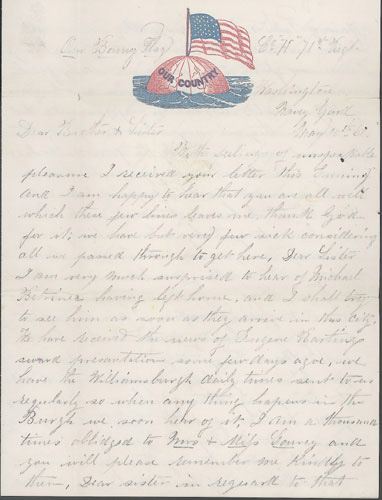 Our Bonny Flag Co "H" 71st Regt
OUR COUNTRY
Washington
Navy Yard
May 15th 61
Dear Mother & Sister
With feelings of unspeakable
pleasure I received your letter this morning
and I am happy to hear that you are all well
which these few lines leaves me, thank God
for it; we have but very few sick considering
all we passed through to get here, Dear Sister
I am very much surprised to hear of Michael
having left home, and I shall try
to see him as soon as they arrive in this City.
We have received the news of Eugene
sword presentation some few days agoe, we
have the Williamsburgh daily times sent to us
regularly so when any thing happens in the
Burgh we soon hear of it, I am a thousand
times obbliged to Mrs & Miss and
you will please remember me kindly to
them, Dear sister in reguard to that